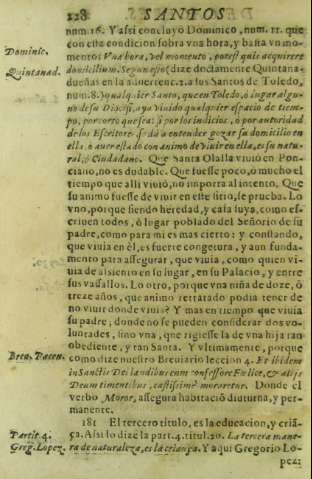 128 SANTOS
num. 16. Y assi concluyo Dominico, num. 11. que
Dominic. con esta condicion sobra vna hora, y basta vn mo-
mento: Vna hora, vel momento, potest quis acquirere
Quintanad. domicilium. Segun esto, dize doctamente Quintana-
dueñas en la advertenc. 1. a los Santos de Toledo,
num. 8. Y qualquier Santo, que en Toledo, ò lugar algu-
no de su Diocesi, aya viuido qualquier espacio de tiem-
po, por corto que sea: si por los indicios, ò por autoridad
de los Escritores se dà a entender gozar su domicilio en
ella, ò auer estado con animo de viuir en ella, es su natu-
ral, ò Ciudadano. Que Santa Olalla viuiò en Pon-
ciano, no es dudable. Que fuesse poco, ò mucho el
tiempo que alli viuiò, no importa al intento. Que
su animo fuesse de viuir en este sitio, se prueba. Lo
vno, porque siendo heredad, y casa suya, como es-
criuen todos, ò lugar poblado del Señorio de su
padre, como para mi es mas cierto: y constando,
que viuia en èl, es fuerte congetura, y aun funda-
mento para assegurar, que viuia, como quien vi-
uia de assiento en su lugar, en su Palacio, y entre
sus vassallos. Lo otro, porque vna niña de doze, ò
treze años, que animo retratado podia tener de
no viuir donde viuia? Y mas en tiempo que viuia
su padre; donde no se pueden considerar dos vo-
luntades, sino vna, que rigiesse la de vna hija tan
obediente, y tan Santa. Y vltimamente, porque
Breu. Pacen. como dize nuestro Breuiario leccion 4. Et ibidem
in Sanctis Dei laudibus cum confessore Felice, & alijs
Deum timentibus, castissimè moraretur. Donde el
verbo Moror, assegura habitaciò diuturna, y per-
manente.
181 El tercero titulo, es la educacion, y criã-
Partit. 4. ça. Assi lo dize la part. 4. titul. 20. La tercera mane-
Greg. Lopez. ra de naturaleza, es la criança. Y aqui Gregorio Lo-
pez: